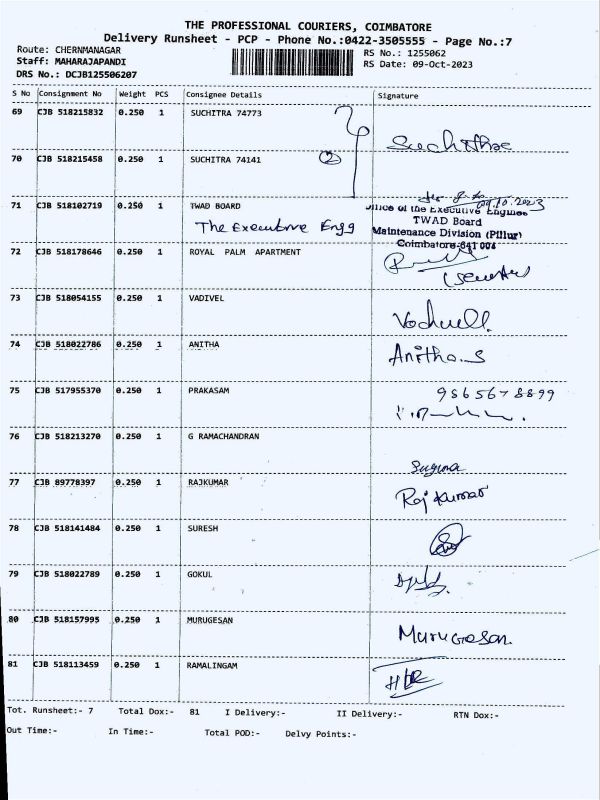 THE PROFESSIONAL COURIERS, COIMBATORE
Delivery Runsheet - PCP - Phone No.:0422-3505555 - Page No.:7
Route: CHERNMANAGAR RS No.: 1255062
Staff: MAHARAJAPANDI RS Date: 09-Oct-2023
DRS No.: DCJB125506207
S No Consignment No Weight PCS Consignee Details Signature
69 CJB 518215832 0.250 1 SUCHITRA 74773
70 CJB 518215458 0.250 1 SUCHITRA 74141 2
71 CJB 518102719 0.250 1 TWAD BOARD 09.10.2023
The Executive Engg
Office of the Executive Engineer
TWAD Board
Maintenance Division (Pillur)
Coimbatore-641 004
72 CJB 518178646 0.250 1 ROYAL PALM APARTMENT
73 CJB 518054155 0.250 1 VADIVEL
74 CJB 518022786 0.250 1 ANITHA Anitha.S
75 CJB 517955370 0.250 1 PRAKASAM 9865678899
76 CJB 518213270 0.250 1 G RAMACHANDRAN
Suguna
77 CJB 89778397 0.250 1 RAJKUMAR Raj Kumar
78 CJB 518141484 0.250 1 SURESH
79 CJB 518022789 0.250 1 GOKUL
80 CJB 518157995 0.250 1 MURUGESAN Murugesan.
81 CJB 518113459 0.250 1 RAMALINGAM
Tot. Runsheet:- 7 Total Dox:- 81 I Delivery:- II Delivery:- RTN Dox:-
Out Time:- In Time:- Total POD:- Delvy Points:-